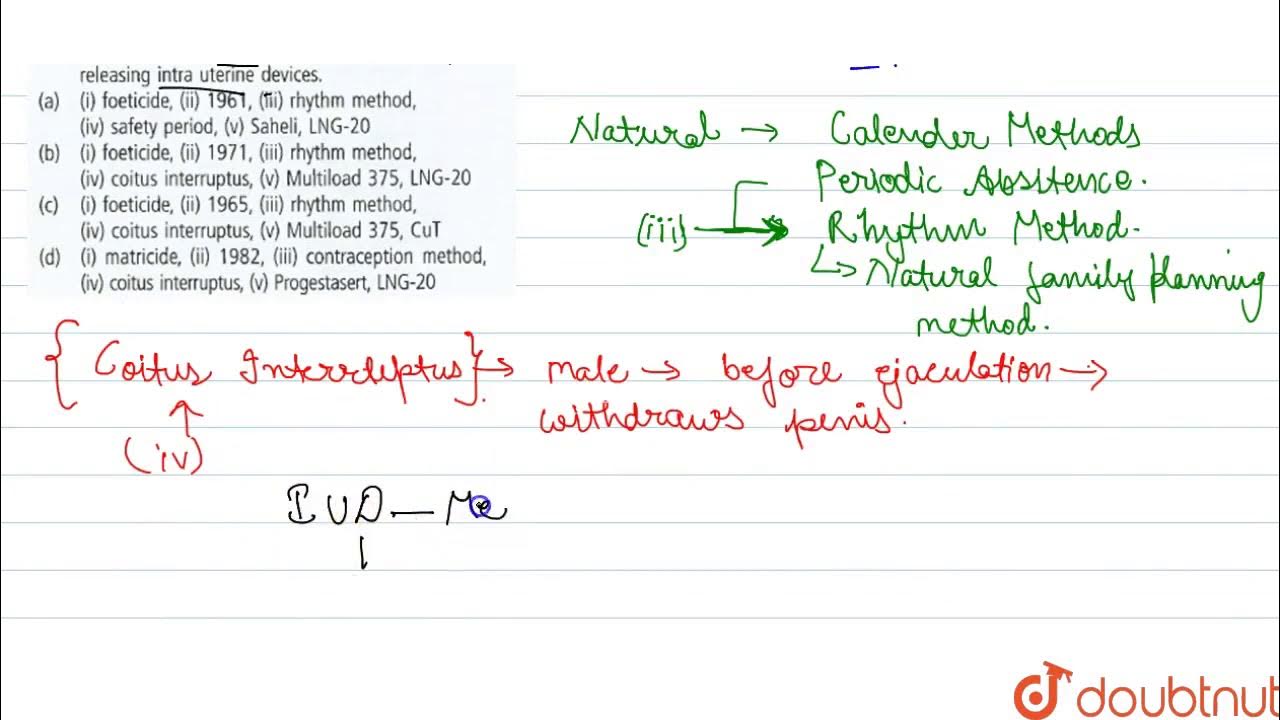 releasing intra uterine devices.
(a) (i) foeticide, (ii) 1961, (iii) rhythm method,
(iv) safety period, (v) Saheli, LNG-20
(b) (i) foeticide, (ii) 1971, (iii) rhythm method,
(iv) coitus interruptus, (v) Multiload 375, LNG-20
(c) (i) foeticide, (ii) 1965, (iii) rhythm method,
(iv) coitus interruptus, (v) Multiload 375, CuT
(d) (i) matricide, (ii) 1982, (iii) contraception method,
(iv) coitus interruptus, (v) Progestasert, LNG-20
Natural → Calender Methods
Periodic Absitence.
(iii) → Rhythm Method.
↳ Natural family planning
method.
{Coitus Interruptus} → male → before ejaculation →
withdraws penis.
(iv)
IUD — Me
doubtnut